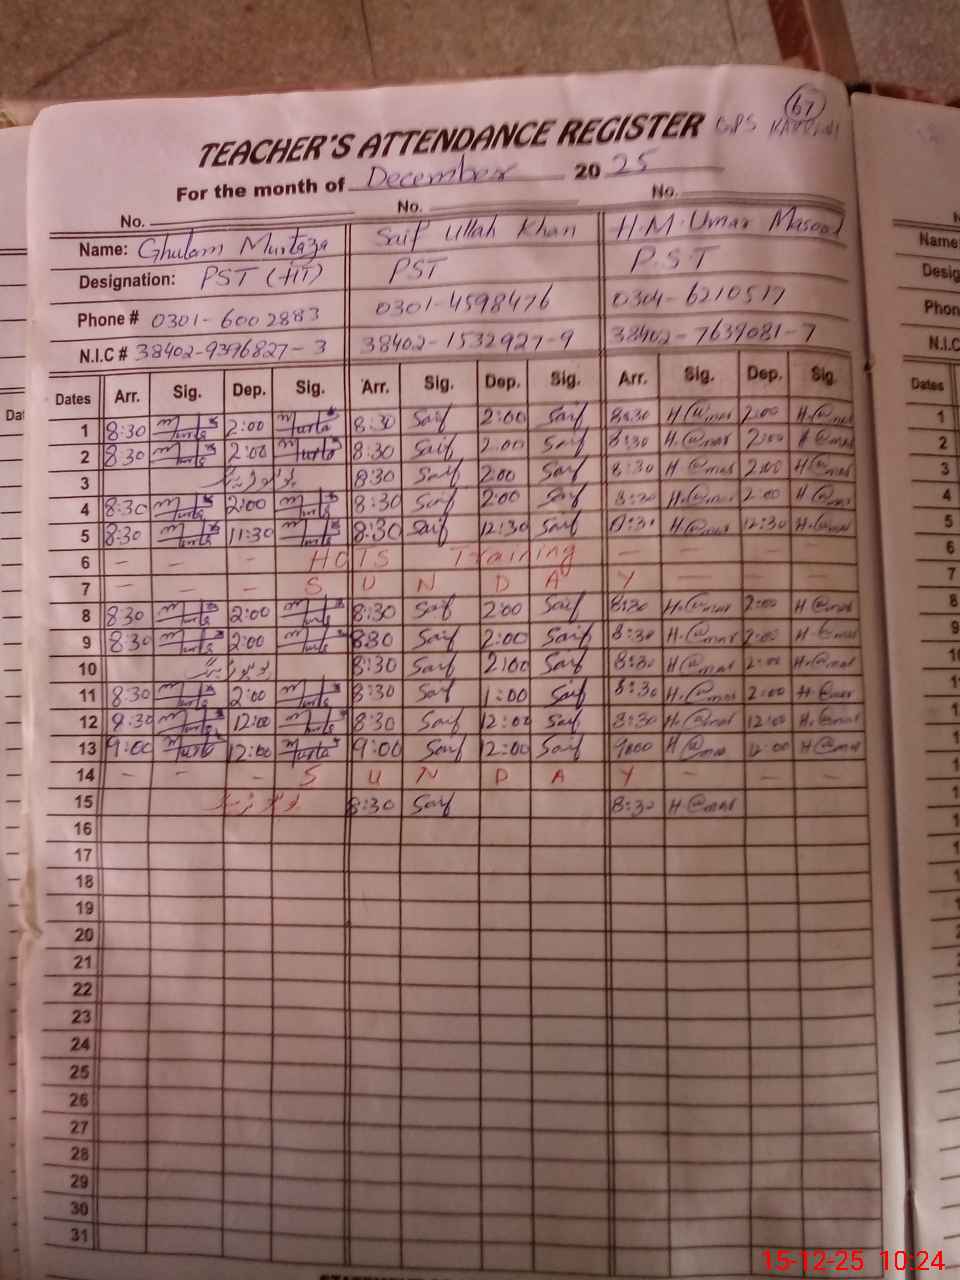 67
TEACHER'S ATTENDANCE REGISTER GPS
For the month of December 2025
No. No. No.
Name: Ghulam Murtaza Saif Ullah Khan H.M.Umar Masood
Designation: PST (HT) PST P.S.T
Phone # 0301-6002883 0301-4598476 0304-6210517
N.I.C # 38402-9396827-3 38402-1532927-9 38402-7639081-7
Dates Arr. Sig. Dep. Sig. Arr. Sig. Dep. Sig. Arr. Sig. Dep. Sig.
1 8:30 Murta 2:00 Murta 8:30 Saif 2:00 Saif 8:30 H.@mar 2:00 H.@mar
2 8:30 Murta 2:00 Murta 8:30 Saif 2:00 Saif 8:30 H.@mar 2:00 H.@mar
3 8:30 Saif 2:00 Saif 8:30 H.@mar 2:00 H.@mar
4 8:30 Murta 2:00 Murta 8:30 Saif 2:00 Saif 8:30 H.@mar 2:00 H.@mar
5 8:30 Murta 11:30 Murta 8:30 Saif 12:30 Saif 8:30 H.@mar 12:30 H.@mar
6 - - - HOTS Training - - - -
7 - - - S U N D A Y - - -
8 8:30 Murta 2:00 Murta 8:30 Saif 2:00 Saif 8:30 H.@mar 2:00 H.@mar
9 8:30 Murta 2:00 Murta 8:30 Saif 2:00 Saif 8:30 H.@mar 2:00 H.@mar
10 8:30 Saif 2:00 Saif 8:30 H.@mar 2:00 H.@mar
11 8:30 Murta 2:00 Murta 8:30 Saif 1:00 Saif 8:30 H.@mar 2:00 H.@mar
12 8:30 Murta 12:00 Murta 8:30 Saif 12:00 Saif 8:30 H.@mar 12:00 H.@mar
13 9:00 Murta 12:00 Murta 9:00 Saif 12:00 Saif 9:00 H.@mar 12:00 H.@mar
14 - - - S U N D A Y - - -
15 8:30 Saif 8:30 H.@mar
16
17
18
19
20
21
22
23
24
25
26
27
28
29
30
31
15-12-25 10:24